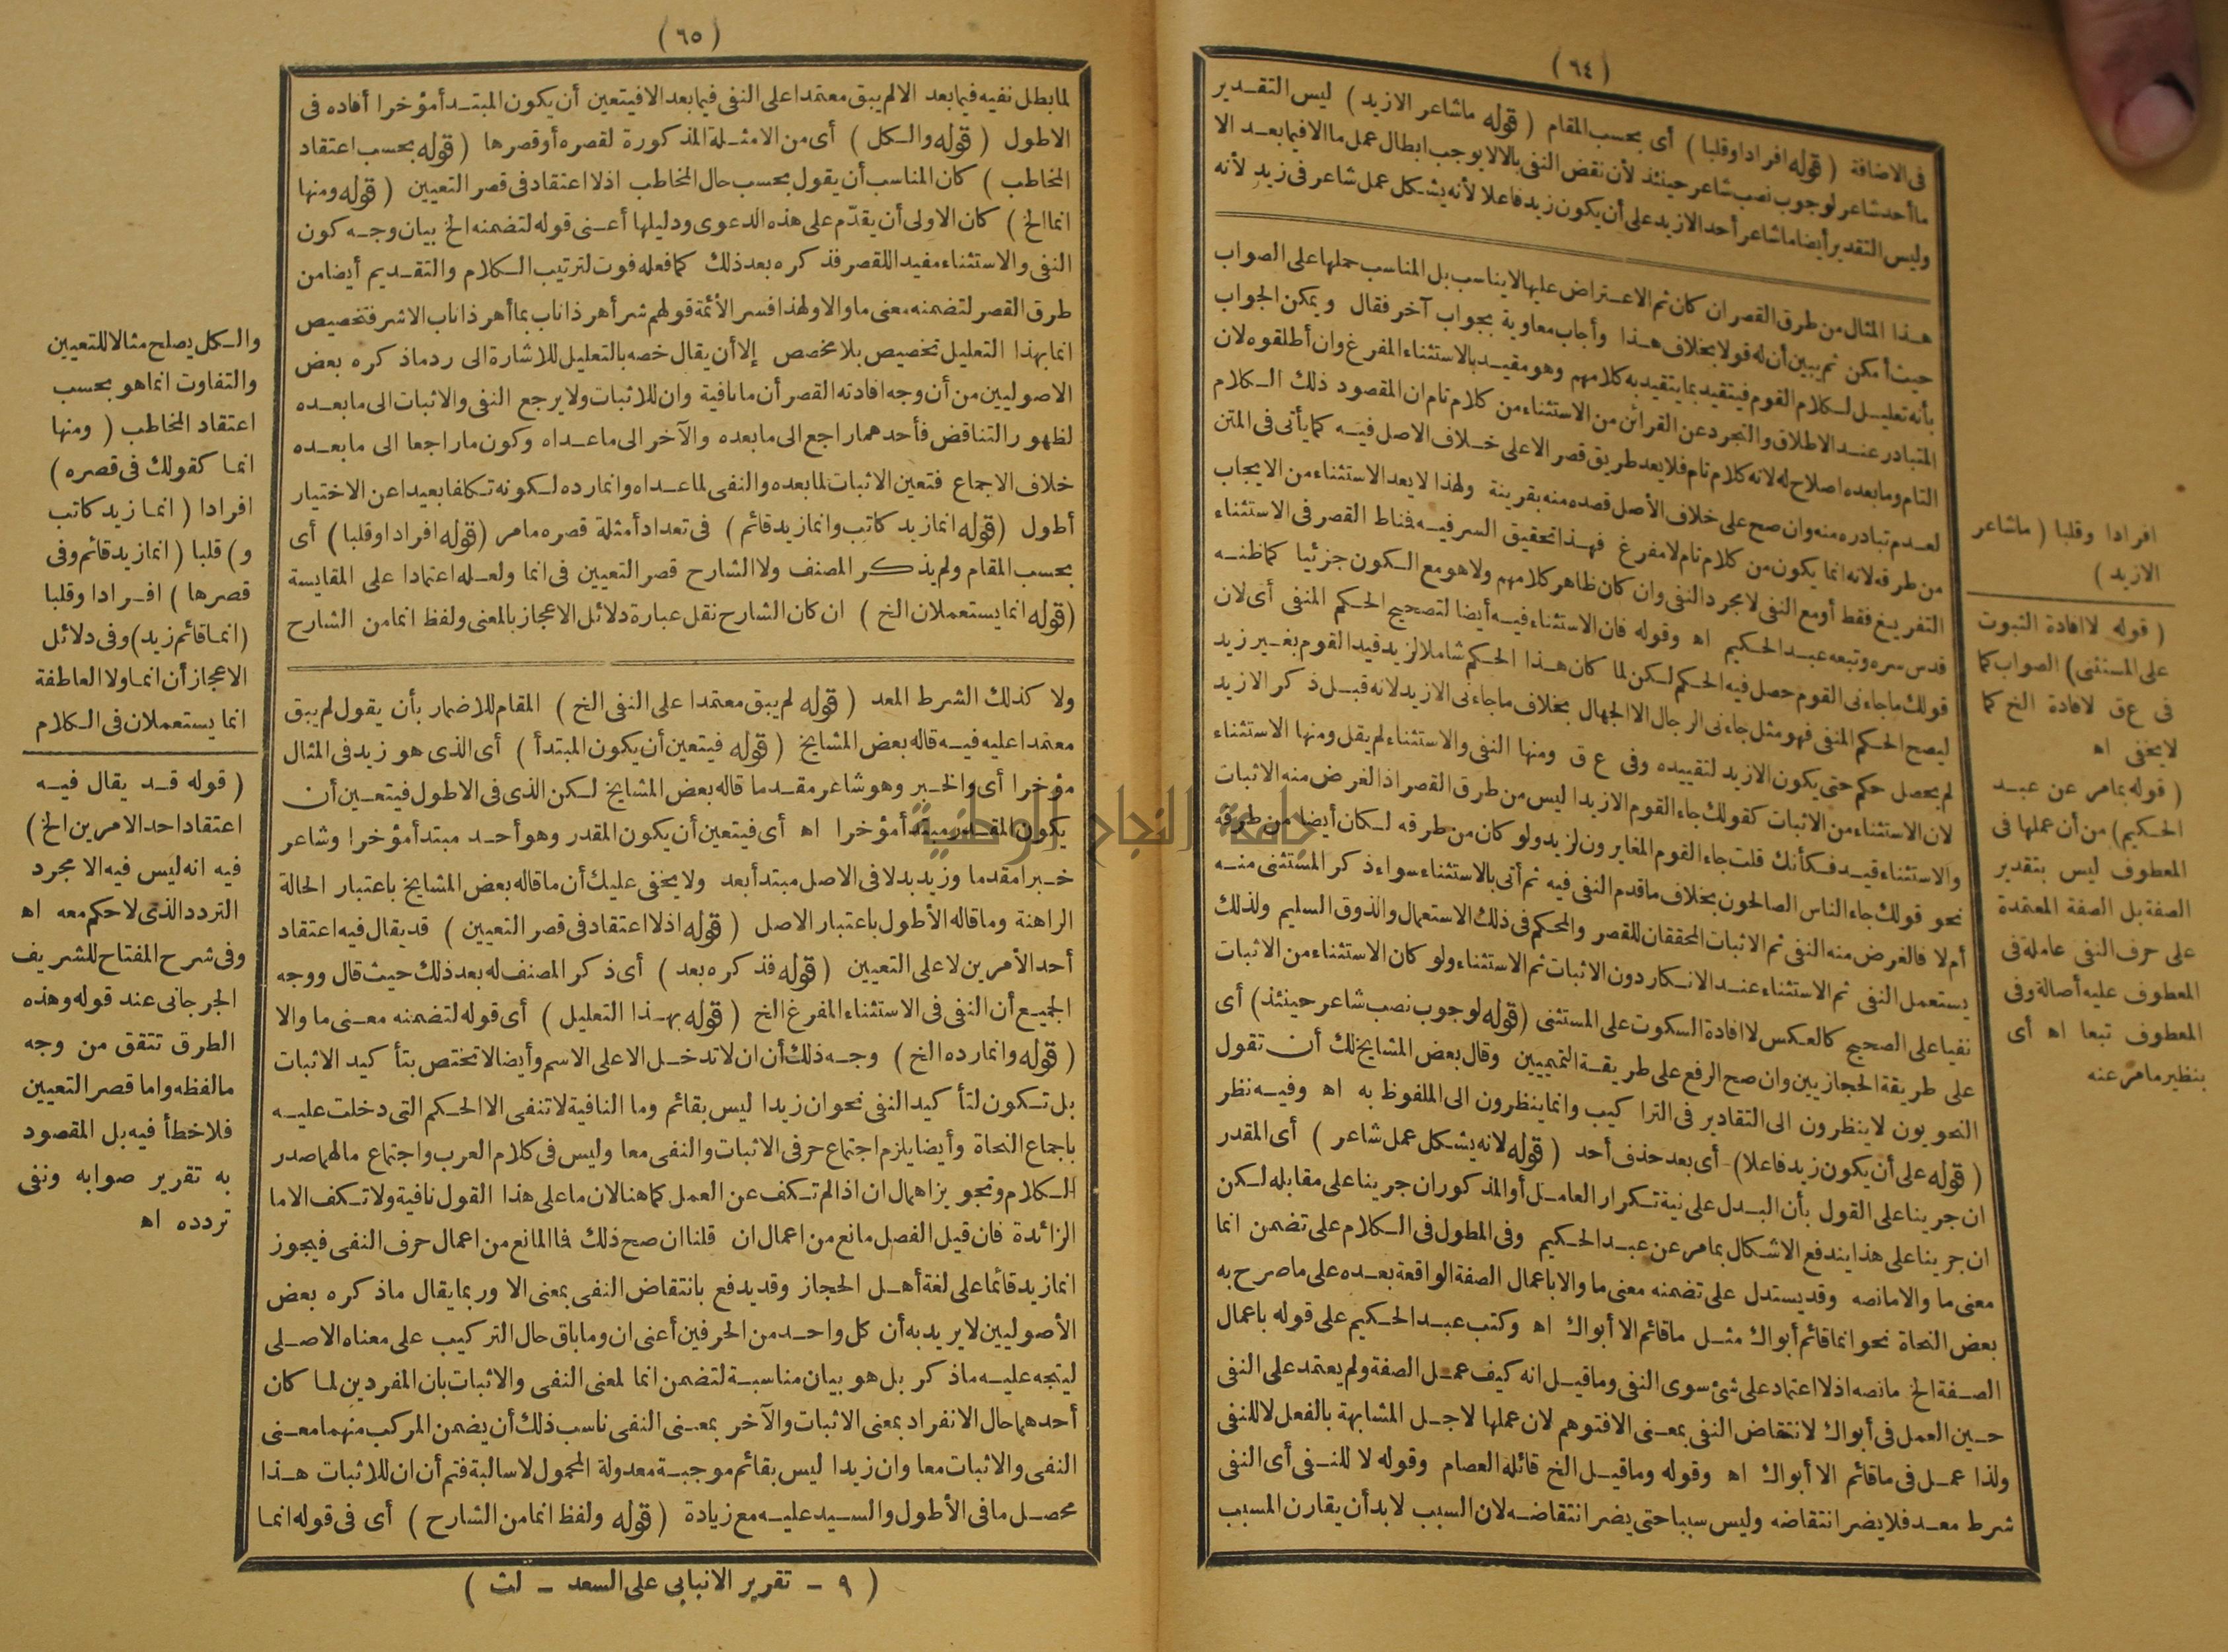 ( ٦٤ )
فى الاضافة ( قوله افرادا وقلبا ) أى بحسب المقام ( قوله ماشاعر الازيد ) ليس التقدير
ماأحد شاعر لوجوب نصب شاعر حينئذ لأن نقض النفى بالا لا يوجب ابطال عمل ما الا فيما بعد الا
وليس التقدير أيضا ماشاعر أحد الازيد على أن يكون زيد فاعلا لأنه يشكل عمل شاعر فى زيد لأنه
هذا المثال من طرق القصر ان كان ثم الاعتراض عليها لا يناسب بل المناسب حملها على الصواب
حيث أمكن ثم يبين أن له قولا بخلاف هذا وأجاب معاوية بجواب آخر فقال ويمكن الجواب
بأنه تعليل لكلام القوم فيتقيد بما يتقيد به كلامهم وهو مقيد بالاستثناء المفرغ وان أطلقوه لان
المتبادر عند الاطلاق والتجرد عن القرائن من الاستثناء من كلام تام ان المقصود ذلك الكلام
التام وما بعده اصلاح له لانه كلام تام فلا يعد طريق قصر الا على خلاف الاصل فيه كما يأتى فى المتن
لعدم تبادره منه وان صح على خلاف الأصل قصده منه بقرينة ولهذا لا يعد الاستثناء من الايجاب
من طرقه لانه انما يكون من كلام تام لا مفرغ فهذا تحقيق السر فيه فناط القصر فى الاستثناء
التفريغ فقط أو مع النفى لا مجرد النفى وان كان ظاهر كلامهم ولا هو مع الكون جزئيا كما ظنه
قدس سره وتبعه عبد الحكيم اه وقوله فان الاستثناء فيه أيضا لتصحيح الحكم المنفى أى لان
قولك ماجاءنى القوم حصل فيه الحكم لكن لما كان هذا الحكم شاملا لزيد قيد القوم بغير زيد
ليصح الحكم المنفى فهو مثل جاءنى الرجال الا الجهال بخلاف ماجاءنى الازيد لانه قبل ذكر الازيد
لم يحصل حكم حتى يكون الازيد لتقييده وفى ع ق ومنها النفى والاستثناء لم يقل ومنها الاستثناء
لان الاستثناء من الاثبات كقولك جاء القوم الازيدا ليس من طرق القصر اذ الغرض منه الاثبات
والاستثناء قيد فكأنك قلت جاء القوم المغايرون لزيد ولو كان من طرقه لكان أيضا من طرقه
نحو قولك جاء الناس الصالحون بخلاف ماقدم النفى فيه ثم أتى بالاستثناء سواء ذكر المستثنى منه
أم لا فالغرض منه النفى ثم الاثبات المحققان للقصر والمحكم فى ذلك الاستعمال والذوق السليم ولذلك
يستعمل النفى ثم الاستثناء عند الانكار دون الاثبات ثم الاستثناء ولو كان الاستثناء من الاثبات
نفيا على الصحيح كالعكس لا افادة السكوت على المستثنى (قوله لوجوب نصب شاعر حينئذ) أى
على طريقة الحجازيين وان صح الرفع على طريقة التميميين وقال بعض المشايخ لك أن تقول
النحويون لا ينظرون الى التقادير فى التراكيب وانما ينظرون الى الملفوظ به اه وفيه نظر
( قوله على أن يكون زيد فاعلا) أى بعد حذف أحد ( قوله لانه يشكل عمل شاعر ) أى المقدر
ان جرينا على القول بأن البدل على نية تكرار العامل أو المذكور ان جرينا على مقابله لكن
ان جرينا على هذا يندفع الاشكال بما مر عن عبد الحكيم وفى المطول فى الكلام على تضمن انما
معنى ما والا مانصه وقد يستدل على تضمنه معنى ما والا باعمال الصفة الواقعة بعده على ماصرح به
بعض النحاة نحو انما قائم أبواك مثل ماقائم الا أبواك اه وكتب عبد الحكيم على قوله باعمال
الصفة الخ مانصه اذ لا اعتماد على شئ سوى النفى وماقيل انه كيف عمل الصفة ولم يعتمد على النفى
حين العمل فى أبواك لانتقاض النفى بمعنى الا فتوهم لان عملها لاجل المشابهة بالفعل لا للنفى
ولذا عمل فى ماقائم الا أبواك اه وقوله وماقيل الخ قائله العصام وقوله لا للنفى أى النفى
شرط معد فلا يضر انتقاضه وليس سببا حتى يضر انتقاضه لان السبب لابد أن يقارن المسبب
افرادا وقلبا ( ماشاعر
الازيد )
( قوله لا افادة الثبوت
على المستثنى) الصواب كما
فى ع ق لافادة الخ كما
لا يخفى اه
( قوله بما مر عن عبد
الحكيم) من أن عملها فى
المعطوف ليس بتقدير
الصفة بل الصفة المعتمدة
على حرف النفى عاملة فى
المعطوف عليه أصالة وفى
المعطوف تبعا اه أى
بنظير مامر عنه
( ٦٥ )
لما بطل نفيه فيما بعد الا لم يبق معتمدا على النفى فيما بعد الا فيتعين أن يكون المبتدأ مؤخرا أفاده فى
الاطول ( قوله والكل ) أى من الامثلة المذكورة لقصره أو قصرها ( قوله بحسب اعتقاد
المخاطب ) كان المناسب أن يقول بحسب حال المخاطب اذ لا اعتقاد فى قصر التعيين ( قوله ومنها
انما الخ ) كان الاولى أن يقدّم على هذه الدعوى ودليلها أعنى قوله لتضمنه الخ بيان وجه كون
النفى والاستثناء مفيدا للقصر فذكره بعد ذلك كما فعله فوت لترتيب الكلام والتقديم أيضا من
طرق القصر لتضمنه معنى ما والا ولهذا فسر الأئمة قولهم شر أهر ذا ناب بما أهر ذا ناب الا شر فتخصيص
انما بهذا التعليل تخصيص بلا مخصص إلا أن يقال خصه بالتعليل للاشارة الى رد ماذكره بعض
الاصوليين من أن وجه افادته القصر أن ما نافية وان للاثبات ولا يرجع النفى والاثبات الى مابعده
لظهور التناقض فأحدهما راجع الى مابعده والآخر الى ماعداه وكون ما راجعا الى مابعده
خلاف الاجماع فتعين الاثبات لما بعده والنفى لما عداه وانما رده لكونه تكلفا بعيدا عن الاختيار
أطول (قوله انما زيد كاتب وانما زيد قائم ) فى تعداد أمثلة قصره مامر (قوله افرادا وقلبا) أى
بحسب المقام ولم يذكر المصنف ولا الشارح قصر التعيين فى انما ولعله اعتمادا على المقايسة
(قوله انما يستعملان الخ ) ان كان الشارح نقل عبارة دلائل الاعجاز بالمعنى ولفظ انما من الشارح
ولا كذلك الشرط المعد ( قوله لم يبق معتمدا على النفى الخ ) المقام للاضمار بأن يقول لم يبق
معتمدا عليه فيه قاله بعض المشايخ ( قوله فيتعين أن يكون المبتدأ ) أى الذى هو زيد فى المثال
مؤخرا أى والخبر وهو شاعر مقدما قاله بعض المشايخ لكن الذى فى الاطول فيتعين أن
يكون المقدر مبتدأ مؤخرا اه أى فيتعين أن يكون المقدر وهو أحد مبتدأ مؤخرا وشاعر
خبرا مقدما وزيد بدلا فى الاصل مبتدأ بعد ولا يخفى عليك أن ماقاله بعض المشايخ باعتبار الحالة
الراهنة وماقاله الأطول باعتبار الاصل ( قوله اذ لا اعتقاد فى قصر التعيين ) قد يقال فيه اعتقاد
أحد الأمرين لا على التعيين ( قوله فذكره بعد ) أى ذكر المصنف له بعد ذلك حيث قال ووجه
الجميع أن النفى فى الاستثناء المفرغ الخ ( قوله بهذا التعليل ) أى قوله لتضمنه معنى ما والا
( قوله وانما رده الخ ) وجه ذلك أن ان لا تدخل الا على الاسم وأيضا لا تختص بتأكيد الاثبات
بل تكون لتأكيد النفى نحو ان زيدا ليس بقائم وما النافية لا تنفى الا الحكم التى دخلت عليه
باجماع النحاة وأيضا يلزم اجتماع حرفى الاثبات والنفى معا وليس فى كلام العرب واجتماع مالهما صدر
الكلام وتجويز اهمال ان اذا لم تكف عن العمل كما هنا لان ما على هذا القول نافية ولا تكف الا ما
الزائدة فان قيل الفصل مانع من اعمال ان قلنا ان صح ذلك فما المانع من اعمال حرف النفى فيجوز
انما زيد قائما على لغة أهل الحجاز وقد يدفع بانتقاض النفى بمعنى الا وربما يقال ماذكره بعض
الأصوليين لا يريد به أن كل واحد من الحرفين أعنى ان وما باق حال التركيب على معناه الاصلى
ليتجه عليه ماذكر بل هو بيان مناسبة لتضمن انما لمعنى النفى والاثبات بان المفردين لما كان
أحدهما حال الانفراد بمعنى الاثبات والآخر بمعنى النفى ناسب ذلك أن يضمن المركب منهما معنى
النفى والاثبات معا وان زيدا ليس بقائم موجبة معدولة المحمول لا سالبة فتم أن ان للاثبات هذا
محصل مافى الأطول والسيد عليه مع زيادة ( قوله ولفظ انما من الشارح ) أى فى قوله انما
والكل يصلح مثالا للتعيين
والتفاوت انما هو بحسب
اعتقاد المخاطب ( ومنها
انما كقولك فى قصره )
افرادا ( انما زيد كاتب
و) قلبا ( انما زيد قائم وفى
قصرها ) افرادا وقلبا
(انما قائم زيد) وفى دلائل
الاعجاز أن انما ولا العاطفة
انما يستعملان فى الكلام
( قوله قد يقال فيه
اعتقاد احد الامرين الخ)
فيه انه ليس فيه الا مجرد
التردد الذى لا حكم معه اه
وفى شرح المفتاح للشريف
الجرجانى عند قوله وهذه
الطرق تتفق من وجه
مالفظه واما قصر التعيين
فلا خطأ فيه بل المقصود
به تقرير صوابه ونفى
تردده اه
( ٩ - تقرير الانبابى على السعد - لث )
جامعة النجاح الوطنية